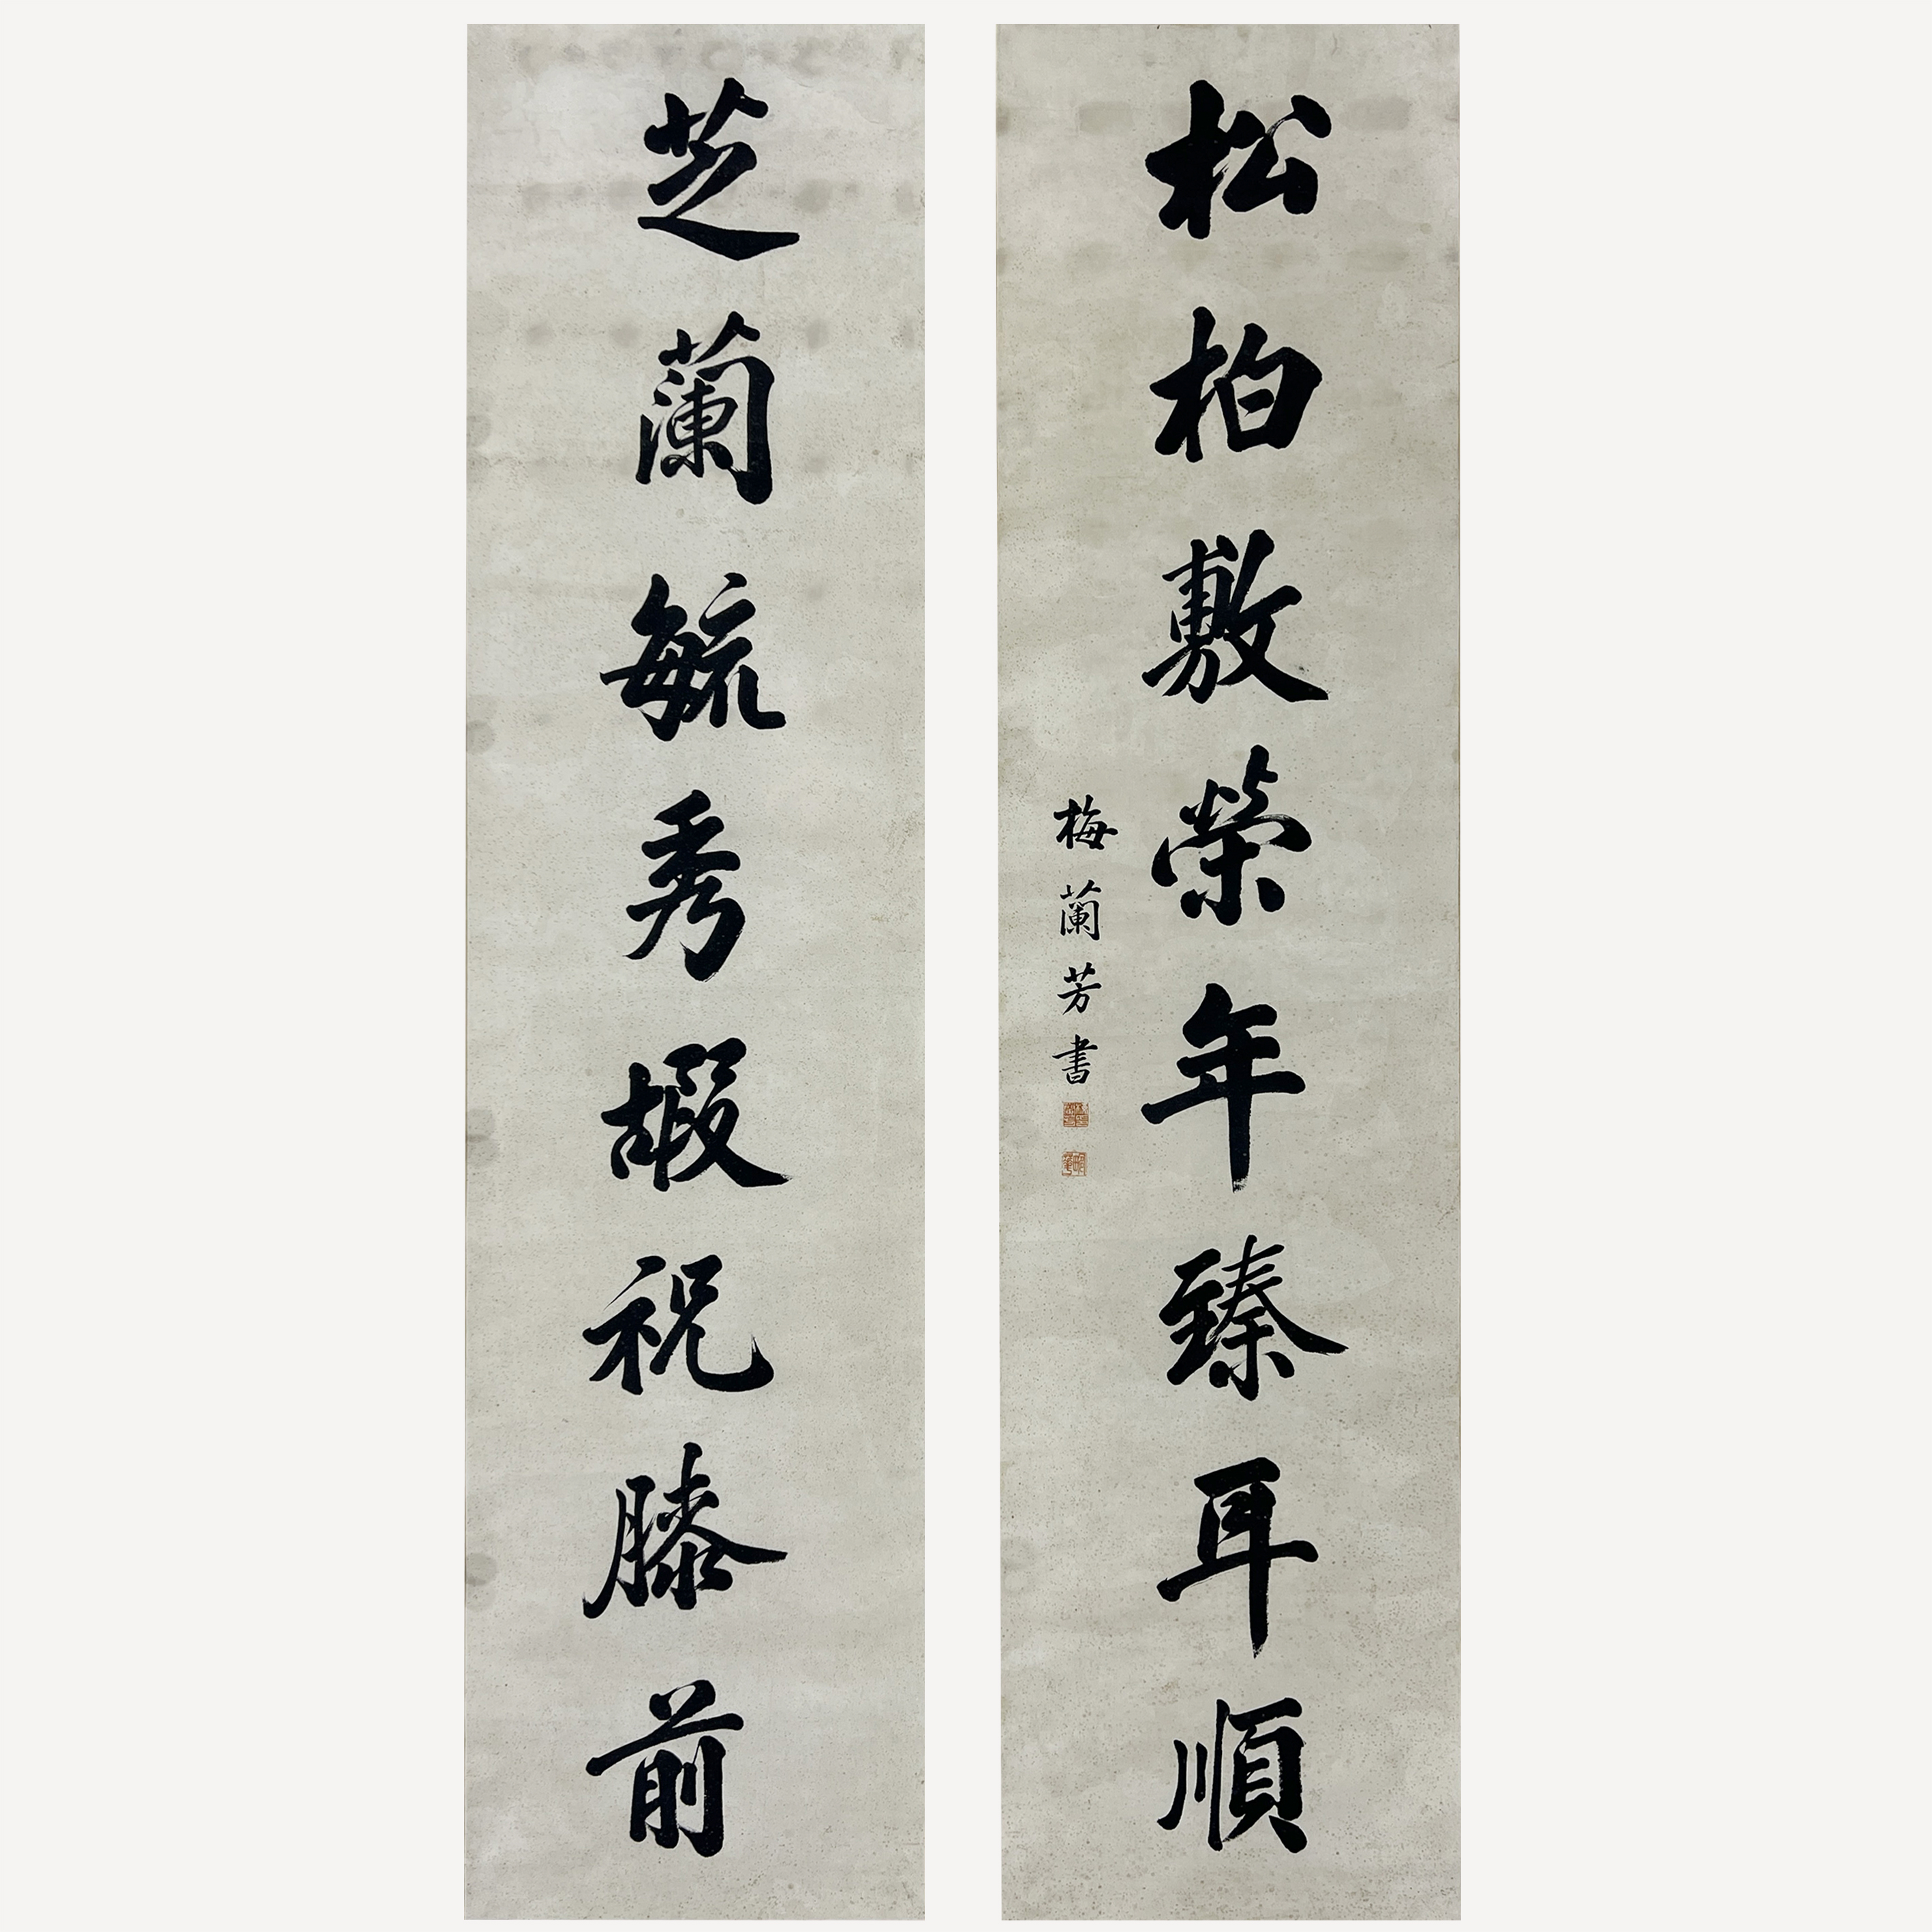 松柏敷榮年臻耳順
梅蘭芳書
芝蘭毓秀嘏祝膝前